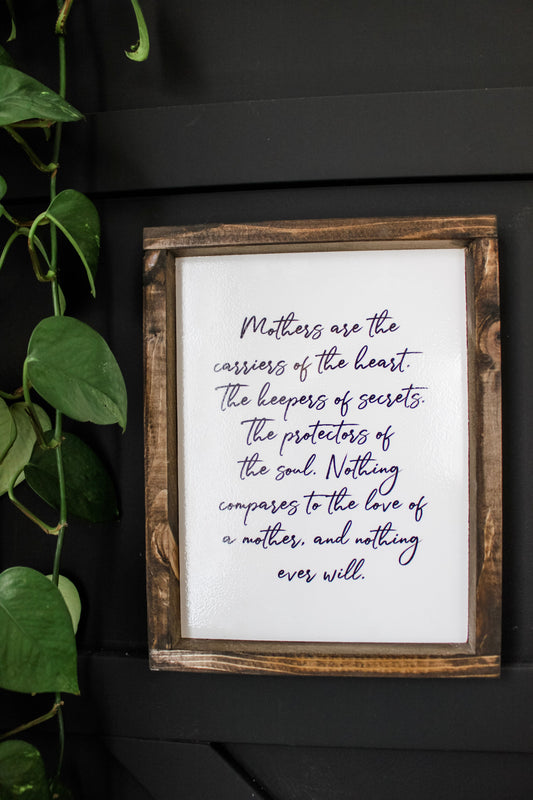 Mothers are the
carriers of the heart.
The keepers of secrets.
The protectors of
the soul. Nothing
compares to the love of
a mother, and nothing
ever will.